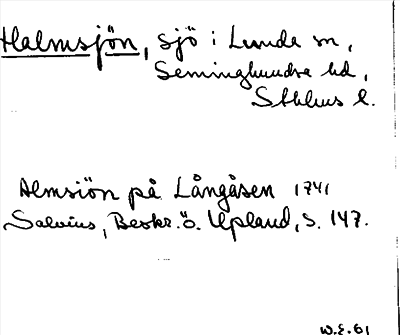 Halmsjön, sjö i Lunda sn,
Seminghundra hd,
Sthlms l.
Almsiön på Långåsen 1741
Salvius, Beskr. ö. Upland, S. 147.
W.E. 61